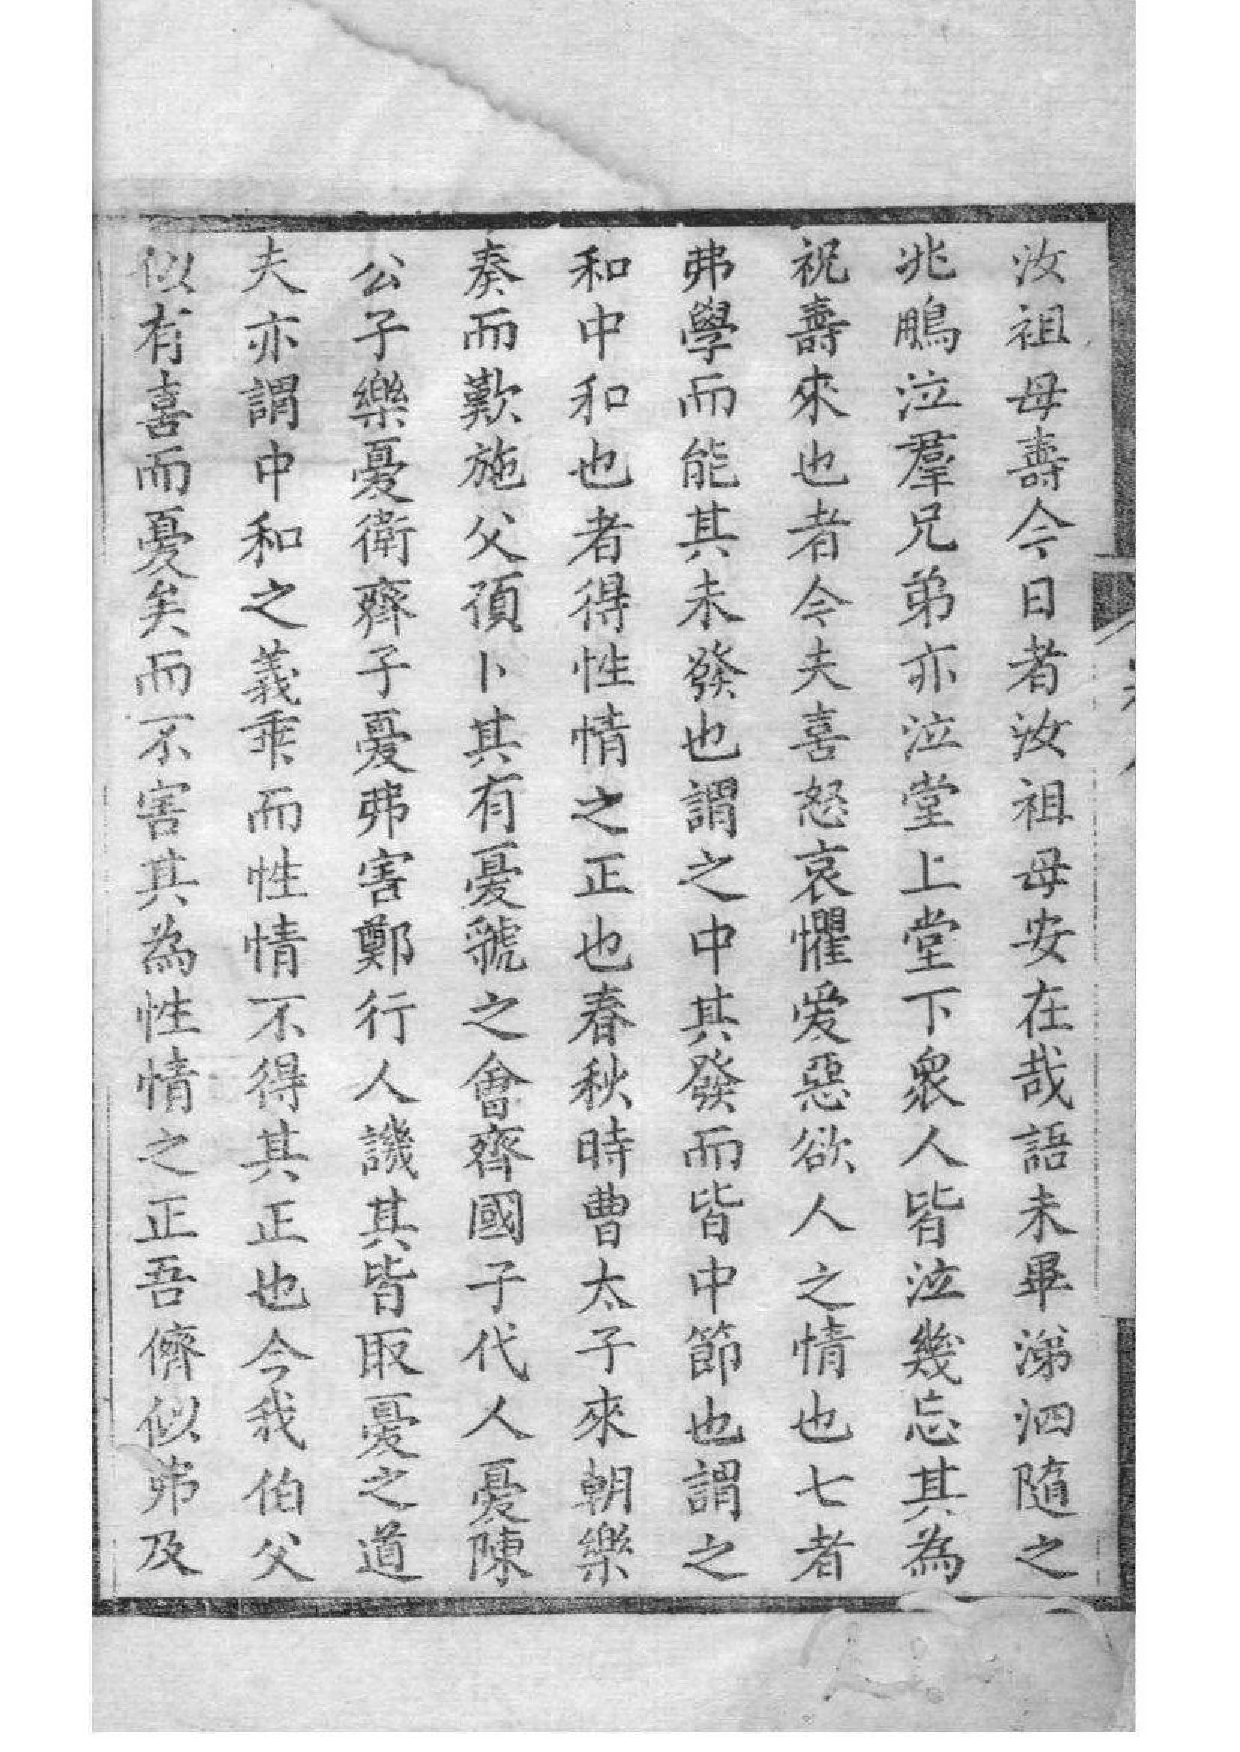 汝祖母壽今日者汝祖母安在哉語未畢涕泗隨之
兆鵬泣羣兄弟亦泣堂上堂下衆人皆泣幾忘其為
祝壽來也者今夫喜怒哀懼愛惡欲人之情也七者
弗學而能其未發也謂之中其發而皆中節也謂之
和中和也者得性情之正也春秋時曹太子來朝樂
奏而歎施父預卜其有憂虢之會齊國子代人憂陳
公子樂憂衛齊子憂弗害鄭行人譏其皆取憂之道
夫亦謂中和之義乖而性情不得其正也今我伯父
似有喜而憂矣而不害其為性情之正吾儕似弗及